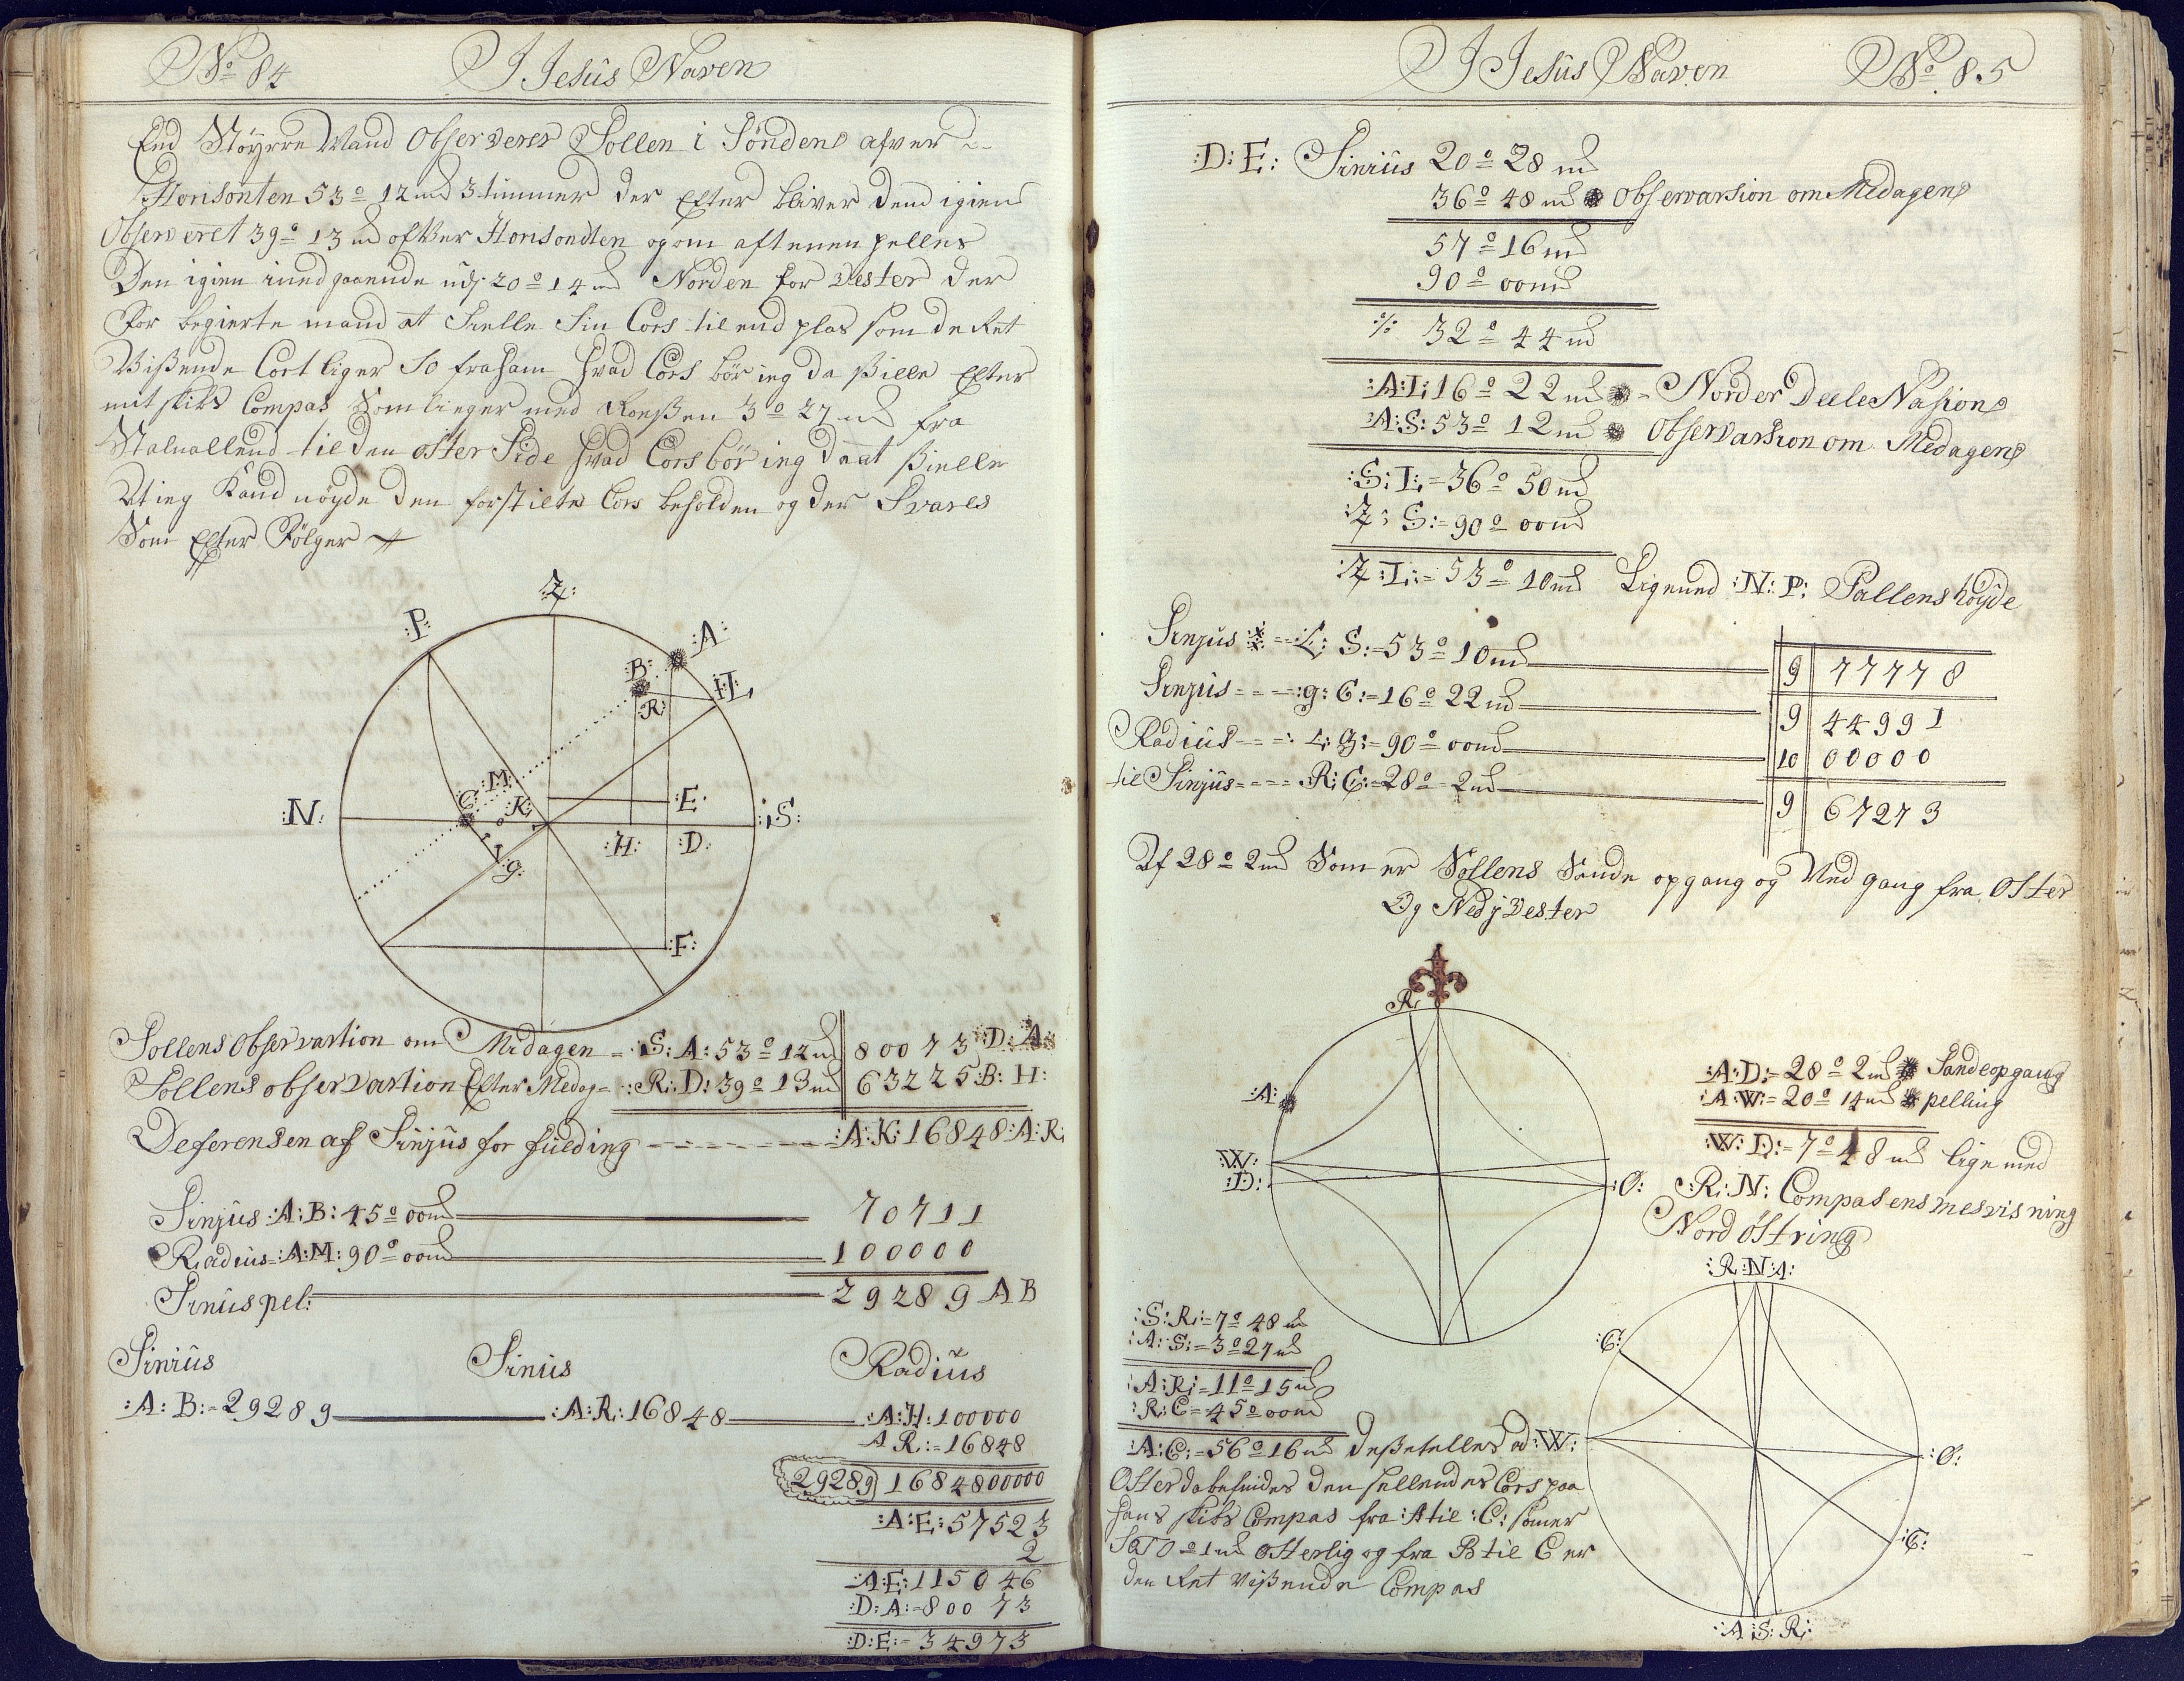 No 84 I Jesus Naven
End Støyrre Mand Observerer Sollen i Sönden afver
Horisonten 53º 12 m 3 timmer der Efter bliver dend igien
Observeret 39º 13 m ofver Horisondten og om aftenen pelles
Den igien nedgaaende udj 20º 14 m Norden for Vester der
For begierte mand at Sielle Sin Cors til end plas som de Ret
Vißende Cort liger SO fraham hvad Cors bör ieg da ßielle Efter
mit skibs Compas Som lieger med Roeßen 3º 27 m fra
til den öster Side hvad Cors bör ieg da at ßielle
At ieg Kand nöyde den forstilte Cors beholden og der Svares
Som Efter Fölger
:Z:
:P: :A:
:B:
:Æ:
:R:
:M:
:C: :K:
:N: :E: :S:
:H: :D:
:g:
:F:
Sollens Observastion om Medagen = :S:A: 53º 12 m 80073 :D:A:
Sollens observastion Efter Medag = :R:D: 39º 13 m 63225 :B:H:
Deferensen af Sinjus for fulding - - - - - - - :A:K: 16848 :A:R:
Sinjus :A:B: 45º 00 m 70711
Radius :A:M: 90º 00 m 100000
Sinus pel: 29289 AB
Sinius Sinius Radius
:A:B:=29289 :A:R: 16848 :A:H: 100000
AR:=16848
29289) 1684800000
:A:E: 57523
2
:A:E: 115046
:D:A:=80073
:D:E:=34973
I Jesus Naven No 85
:D:E: Sinius 20º 28 m
36º 48 m Observarsion om Medagen
57º 16 m
90º 00 m
% 32º 44 m
:A:Æ: 16º 22 m = Norder Deele Nasion
:A:S: 53º 12 m Observarsion om Medagen
:S:Æ:=36º 50 m
:Z:S:=90º 00 m
:Z:Æ:=53º 10 m Lignend :N:P: Pollens höyde
Sinjus :Æ:S:=53º 10 m 9 77778
Sinjus - - - :g:C:=16º 22 m 9 44991
Radius - - - :Æ:Z:=90º 00 m 10 00000
til Sinjus - - - - R:C:=28º 2 m 9 67273
Af 28º 2 m Som er Sollens Sande opgang og Nedgang fra Oster
Og Nedj Vester
R
:A: :A:D:=28º 2 m Sande opgang
:A:W:=20º 14 m pelling
:W:D:=7º 48 m lige med
:W:
:D: :O: :R:N: Compasens mesvisning
Nord östring
:R:N:A:
:S:R:=7º 48 m
:A:S:=3º 27 m
:A:R:=11º 15 m
:R:C=45º 00 m
:C:
:A:C:=56º 16 m ad :W: :O:
Oster da befindes den sellendes Cors paa
hans skibs Compas fra :A til :C: som er
SOTO º 1 m Osterlig og fra B til C er
den Ret Vißende Compas
:C:
:A:S:R: